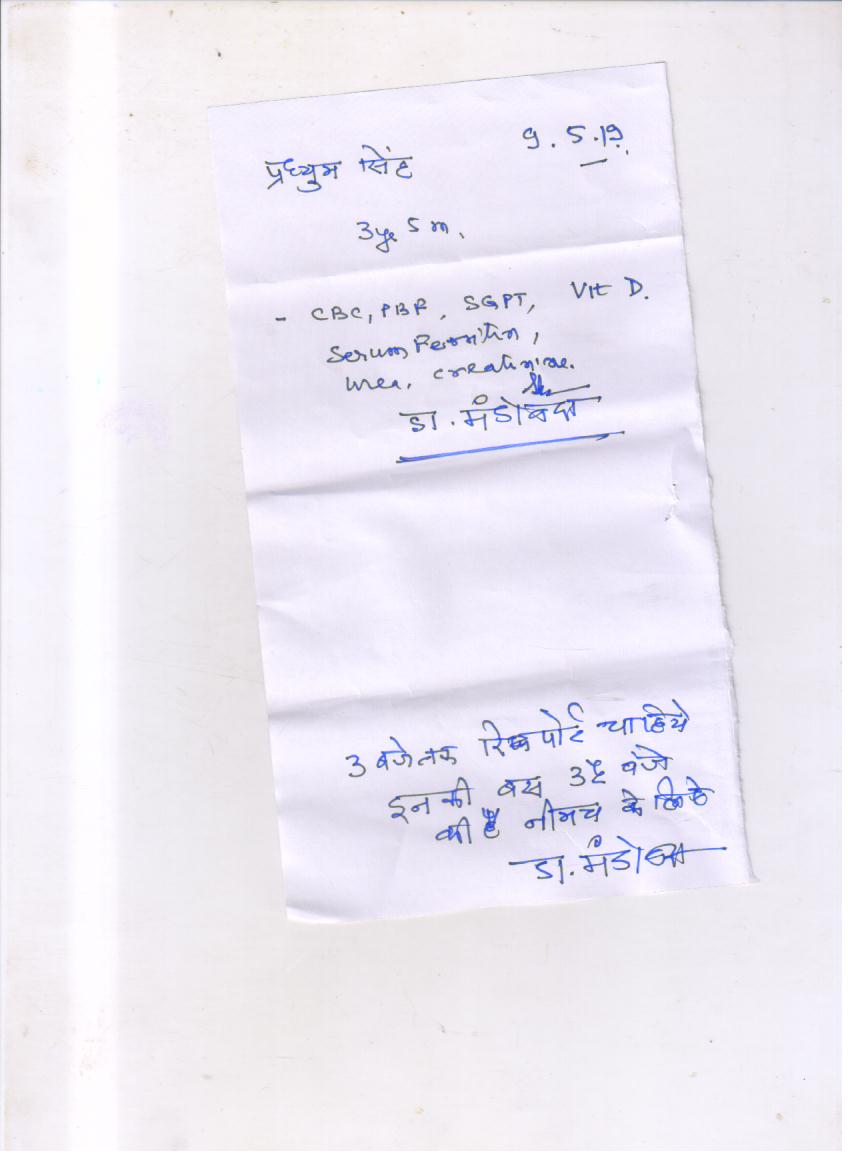 9.5.19
प्रध्युम सिंह
3ye 5 m.
- CBC, PBF, SGPT, Vit D.
Serum Ferritin,
Urea, creatinine.
डा. मंडोवरा
3 बजे तक रिपोर्ट चाहिये
इनकी बस 3½ बजे
की है नीमच के लिये
डा. मंडोवरा